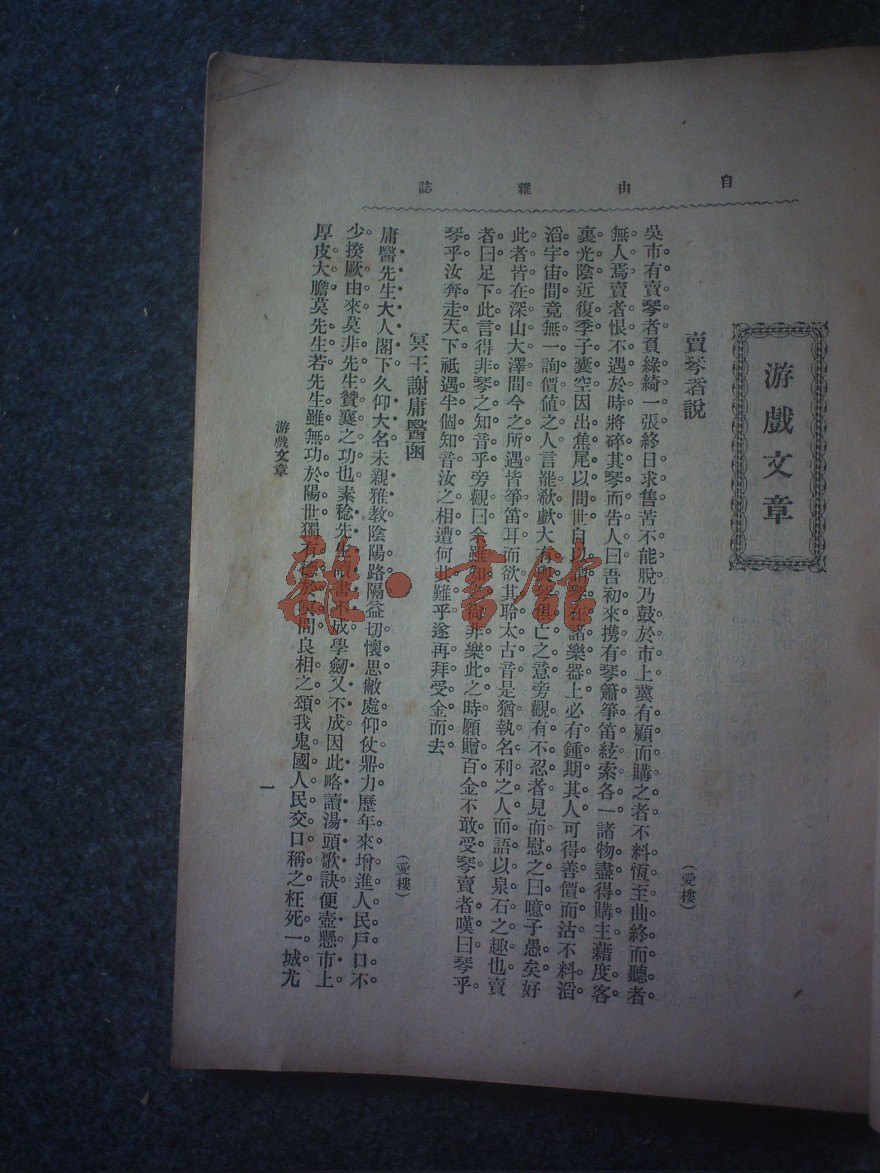 自由雜誌
游戲文章
賣琴者說
(愛樓)
吳市有賣琴者負綠綺一張終日求售苦不能脫乃鼓於市上冀有顧而購之者不料恆至曲終而聽者
無人焉賣者恨不遇於時將碎其琴而告人曰吾初來携有琴簫箏笛絃索各一諸物盡得購主藉度客
裏光陰近復季子囊空因出焦尾以問世自以
在諸樂器上必有鍾期其人可得善價而沽不料滔
滔宇宙間竟無一詢價值之人言詑欷歔大有
亡之意旁觀有不忍者見而慰之曰噫子愚矣好
此者皆在深山大澤間今之所遇皆箏笛耳而欲其聆太古音是猶執名利之人而語以泉石之趣也賣
者曰足下此言得非琴之知音乎旁觀曰余雖
非樂此之時願贈百金不敢受琴賣者嘆曰琴乎
琴乎汝奔走天下祗遇半個知音汝之相遭何其難乎遂再拜受金而去
冥王謝庸醫函
(愛樓)
庸醫先生大人閣下久仰大名未親雅教陰陽路隔益切懷思敝處仰仗鼎力歷年來增進人民戶口不
少揆厥由來莫非先生贊襄之功也素稔先生
書不成學劒又不成因此略讀湯頭歌訣便壺懸市上
厚皮大膽莫先生若先生雖無功於陽世獨有
於冥間良相之頌我鬼國人民交口稱之枉死一城尤
游戲文章
一
雜·書館